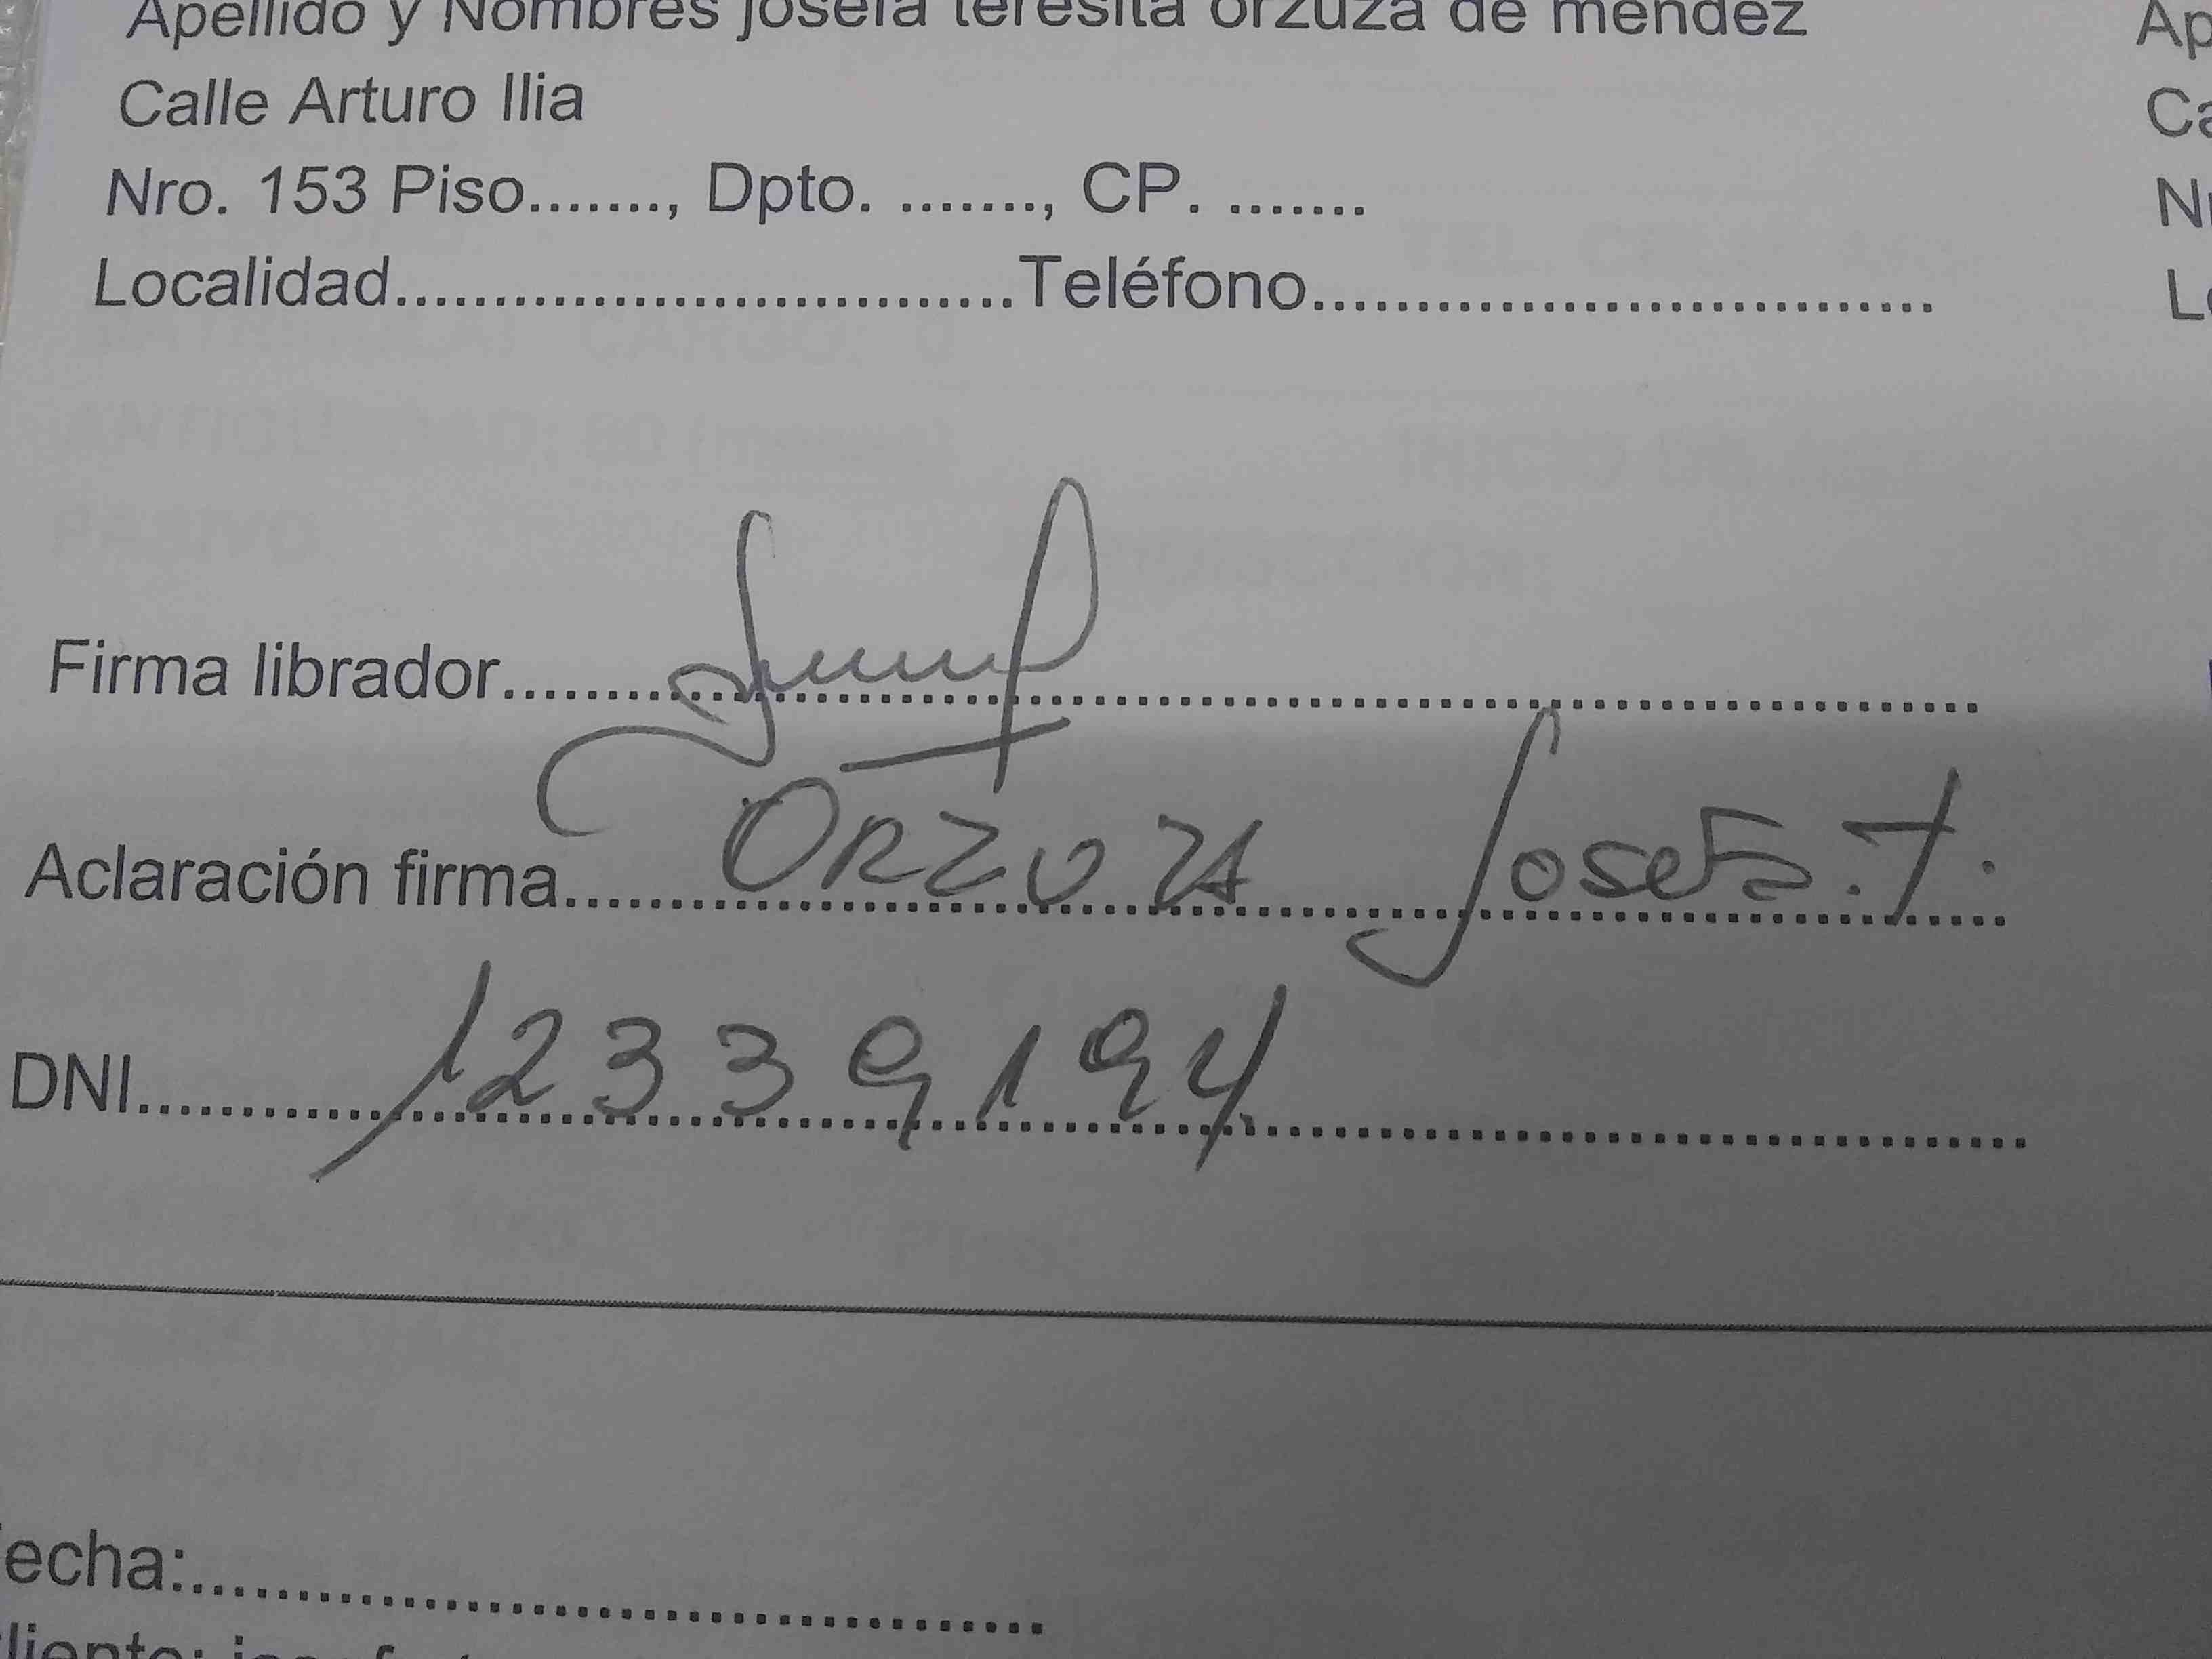 Apellido y Nombres josefa teresita orzuza de mendez
Ap
Calle Arturo Ilia
Ca
Nro. 153 Piso......., Dpto. ........, CP. ........
Localidad...............................Teléfono...............................
Firma librador...............................
Aclaración firma ORZUZA Josefa. T.
DNI 12339194
echa:...............................